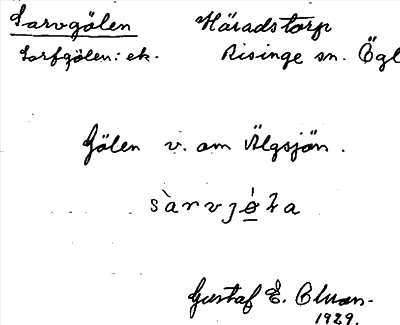 Sarvgölen Häradstorp
Sarfgölen: ek. Risinge sn. Ögl
Gölen v. om Älgsjön.
sàrvjö́ɫa
Gustaf E.
1929.